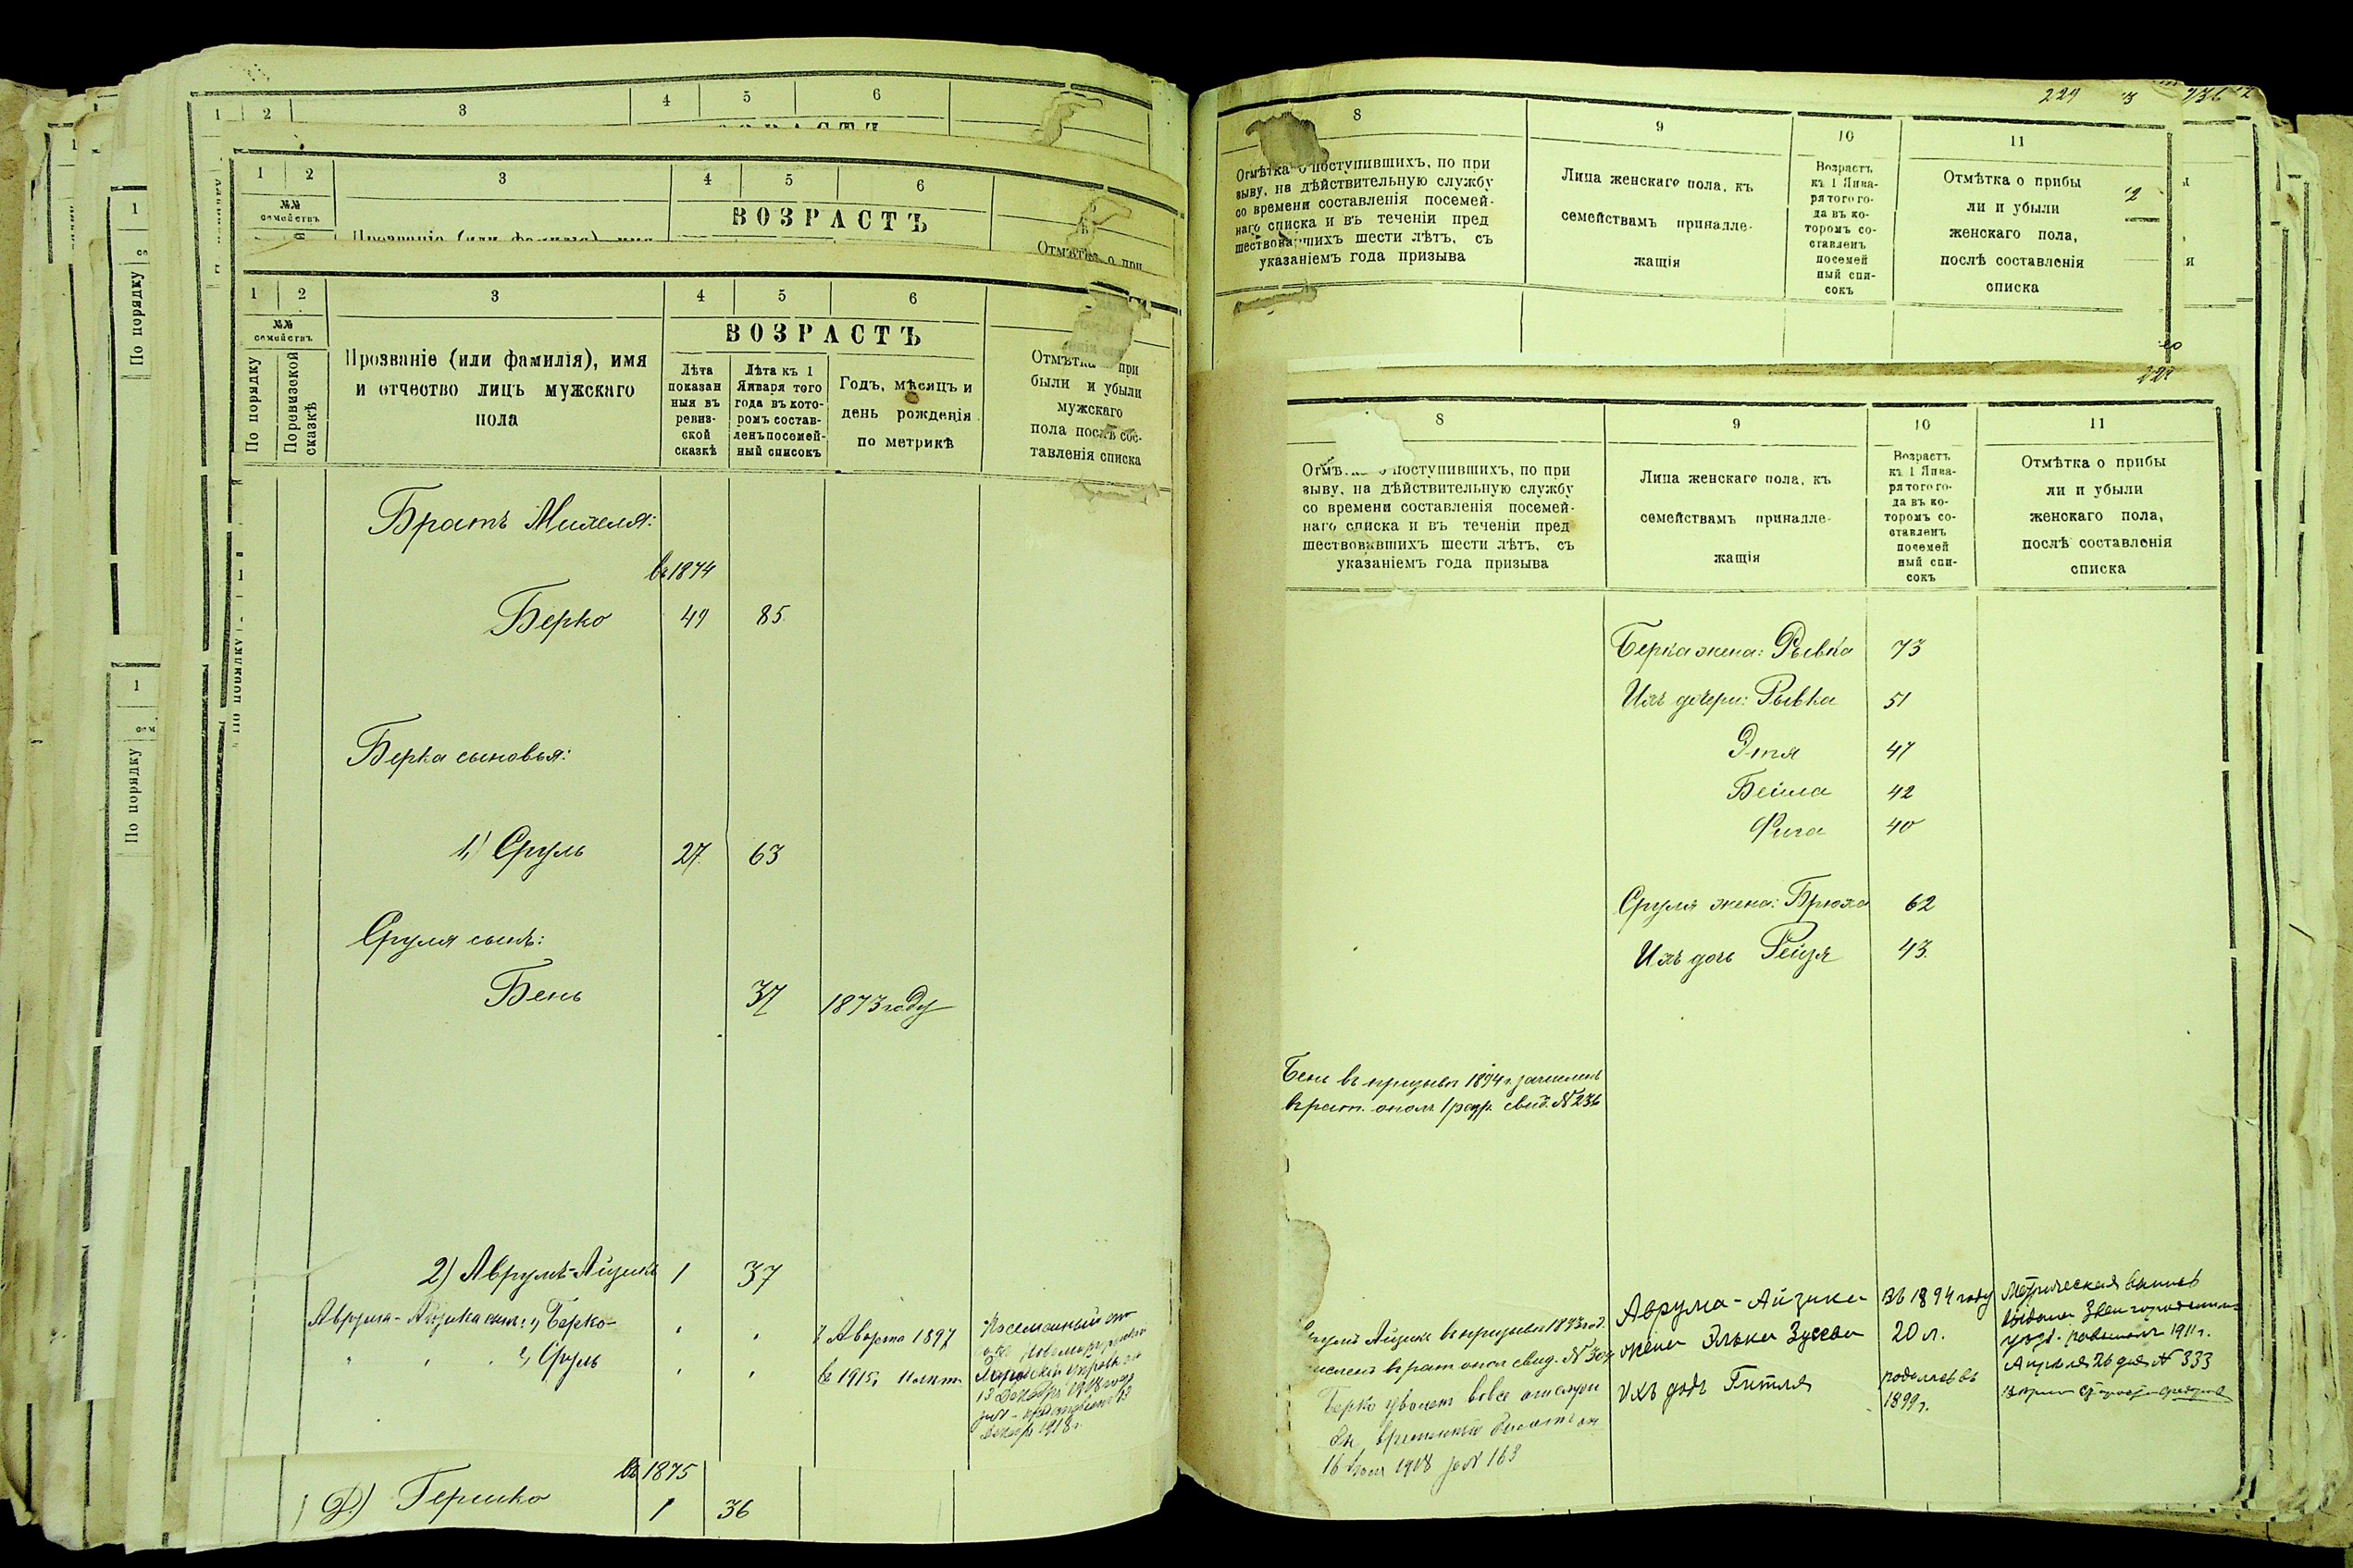 1 2 3 4 5 6
ВОЗРАСТЪ
1 2 3 4 5 6
№№
семействъ
ВОЗРАСТЪ
Прозваніе (или фамилія), имя
Отмѣтка о при
1 2 3 4 5 6
№№
семействъ
По порядку
По ревизской
сказкѣ
Прозваніе (или фамилія), имя
и отчество лицъ мужскаго
пола
ВОЗРАСТЪ
Лѣта
показан
ныя въ
ревиз-
ской
сказкѣ
Лѣта къ 1
Января того
года въ кото-
ромъ состав-
ленъ посемей-
ный списокъ
Годъ, мѣсяцъ и
день рожденія
по метрикѣ
Отмѣтка при
были и убыли
мужскаго
пола послѣ сос-
тавленія списка
Братъ Михеля:
въ 1874
Берко 49 85
Берка сыновья:
1) Сруль 27 63
Сруля сынъ:
Бень 37 1873 году
2) Аврумъ-Айзикъ 1 37
Аврума-Айзика сын: 1) Берко 7 Марта 1897
2) Сруль въ 1915 г. 11 лѣтъ
13 Декабря 1918 года
1918 г.
въ 1875
Гершко 1 36
По порядку
1
По порядку
1
По порядку
229 236
8 9 10 11
Отмѣтка о поступившихъ, по при
зыву, на дѣйствительную службу
со времени составленія посемей-
наго списка и въ теченіи пред
шествовавшихъ шести лѣтъ, съ
указаніемъ года призыва
Лица женскаго пола, къ
семействамъ принадле-
жащія
Возрастъ
къ 1 Янва-
ря того го-
да въ ко-
торомъ со-
ставленъ
посемей
ный спи-
сокъ
Отмѣтка о прибы
ли и убыли
женскаго пола,
послѣ составленія
списка
8 9 10 11
Отмѣтка о поступившихъ, по при
зыву, на дѣйствительную службу
со времени составленія посемей-
наго списка и въ теченіи пред
шествовавшихъ шести лѣтъ, съ
указаніемъ года призыва
Лица женскаго пола, къ
семействамъ принадле-
жащія
Возрастъ
къ 1 Янва-
ря того го-
да въ ко-
торомъ со-
ставленъ
посемей
ный спи-
сокъ
Отмѣтка о прибы
ли и убыли
женскаго пола,
послѣ составленія
списка
Берка жена: Рывка 73
Ихъ дочери: Рывка 51
Этя 47
Бейла 42
Фига 40
Сруля жена: Брюха 62
Ихъ дочь Рейзя 43
Бень въ призывъ 1894 г. зачисленъ
въ рат. ополч. 1 разр. свид. № 236
Айзикъ въ призывъ
въ рат. опол. свид. №
Берко уволенъ вовсе
16 1918 за № 163
Аврума-Айзика въ 1894 году
жена Элька Зусева 20 л.
Ихъ дочь Гитля родилась въ
1899 г.
Метрическая выпись
выдана Звенигородскимъ
уѣзд. раввиномъ 1911 г.
Апрѣля 26 дня № 333